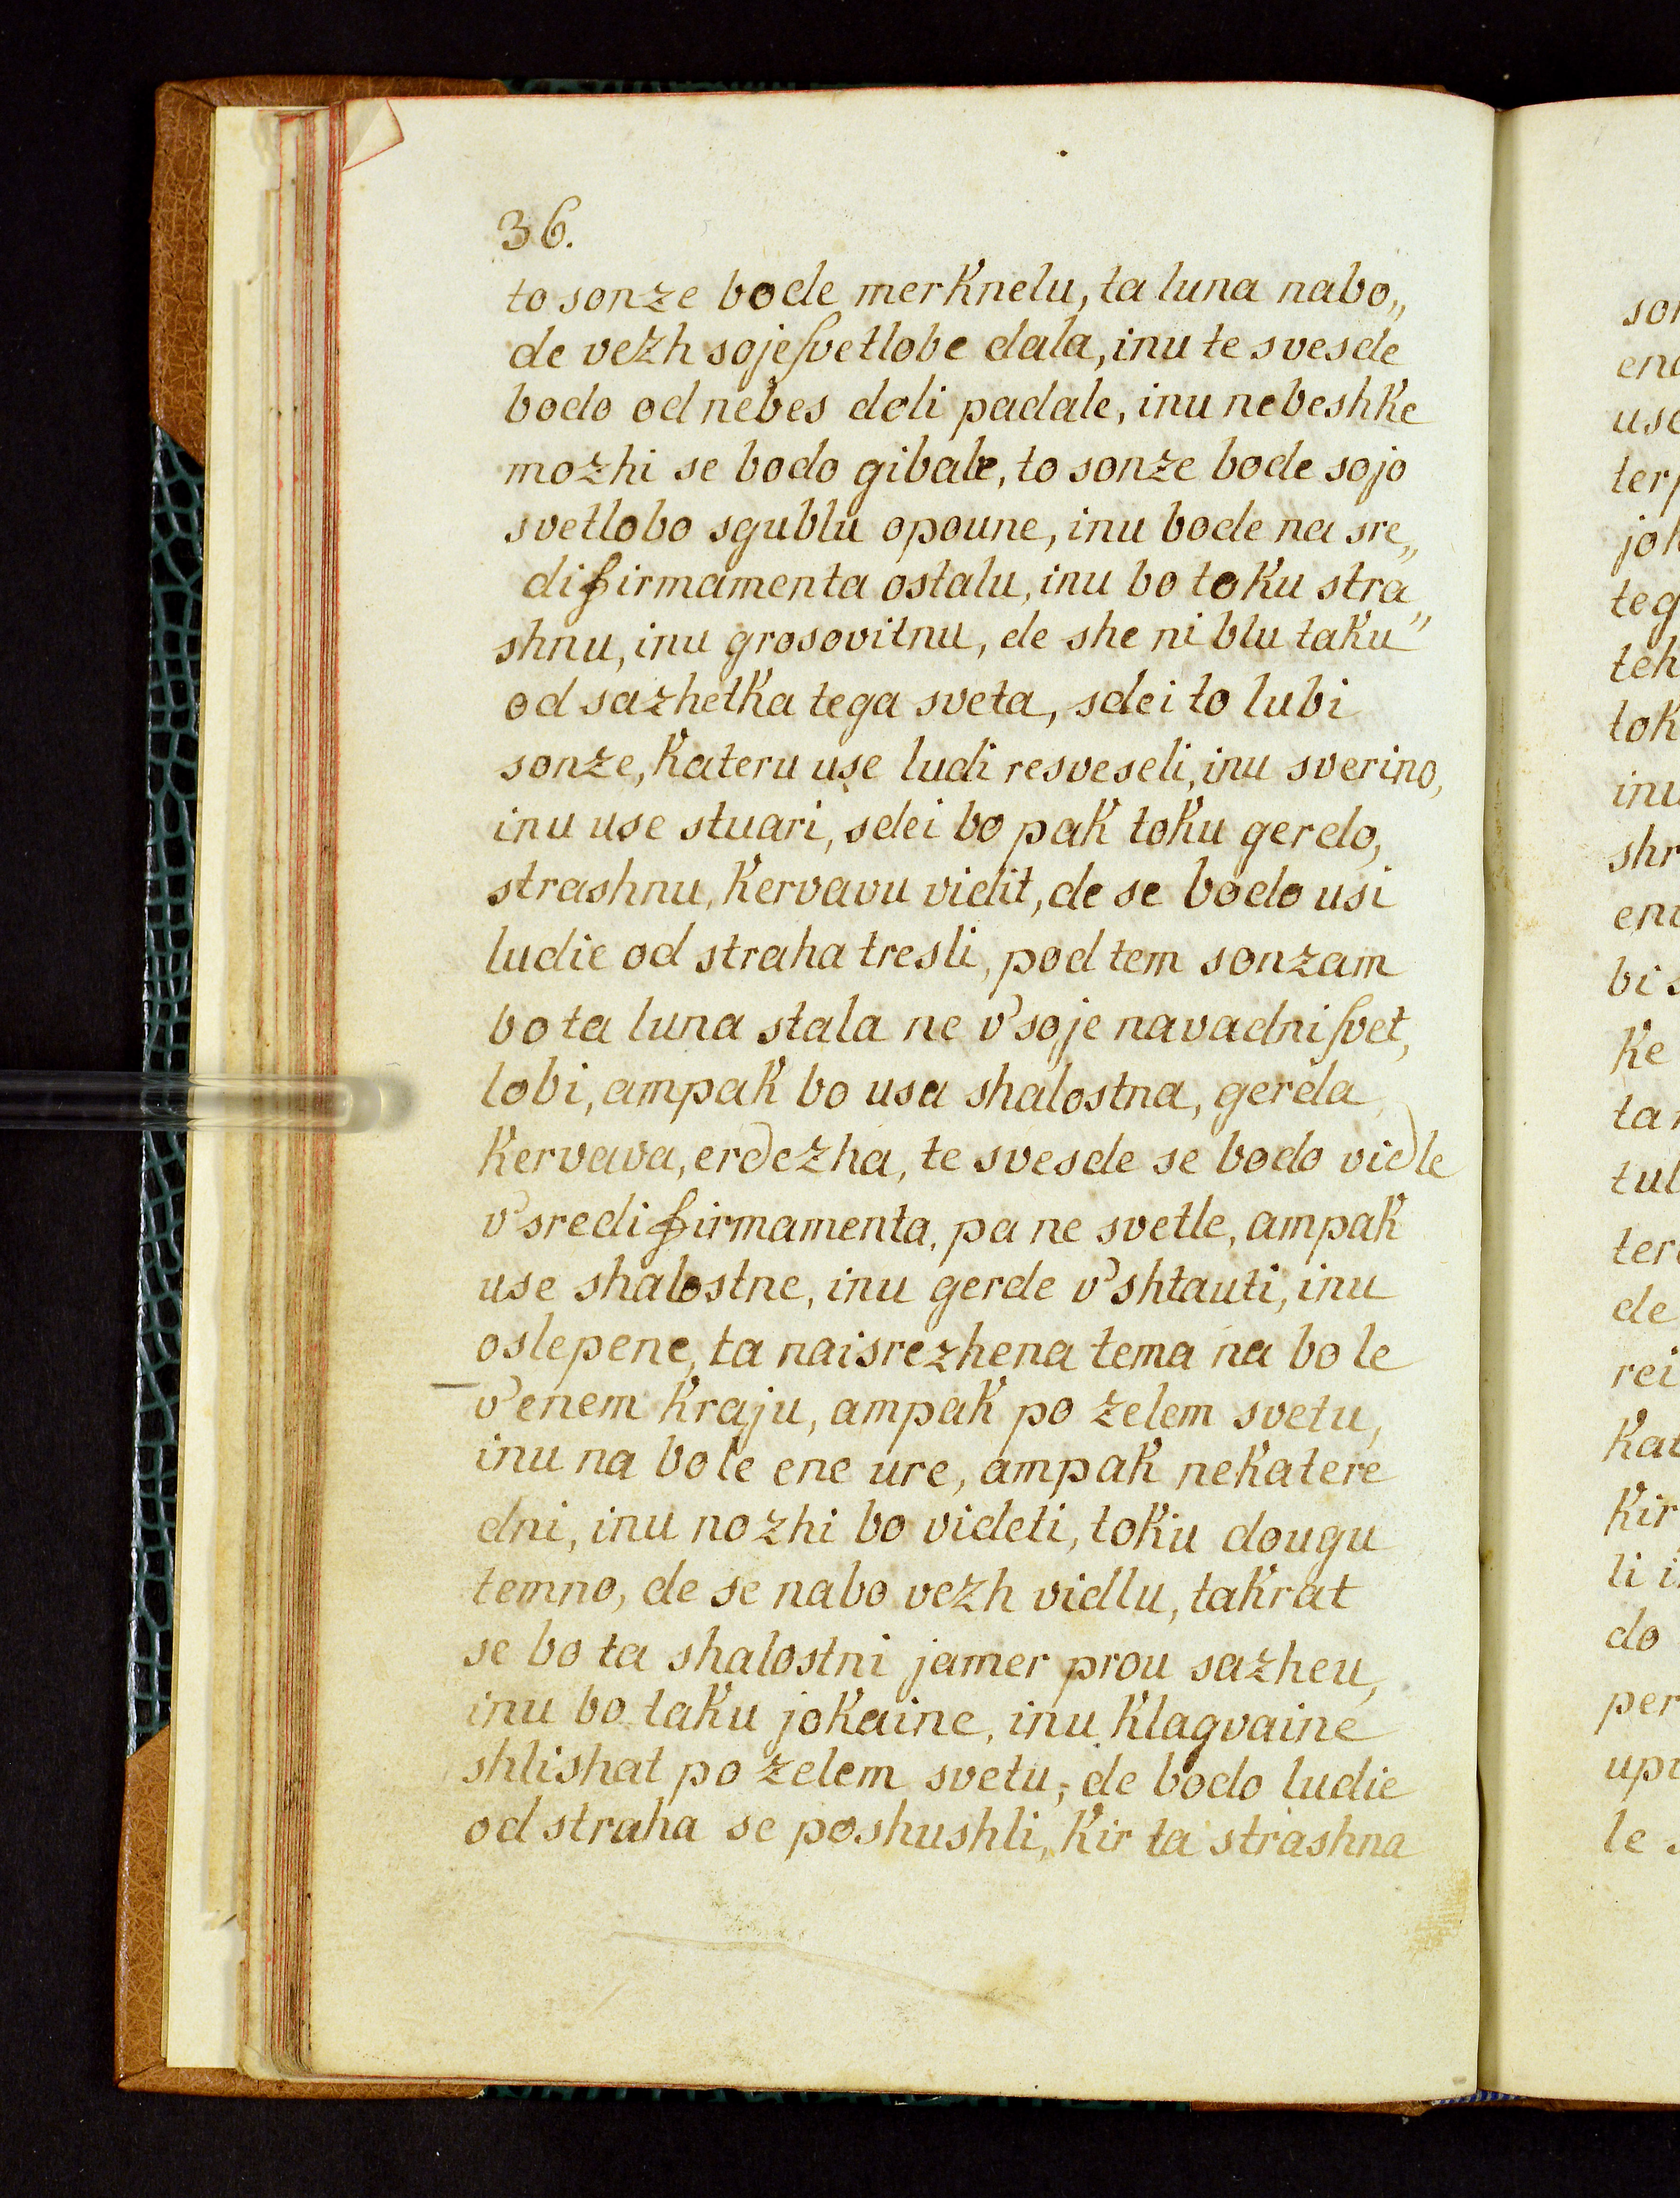 36.
to sonze bode merknelu, ta luna nabo„
de vezh soje ſvetlobe dala, inu te svesde
bodo od nebes doli padale, inu nebeshke
mozhi se bodo gibale, to sonze bode sojo
svetlobo sgublu opoune, inu bode na sre„
di firmamenta ostalu, inu bo toku stra„
shnu, inu grosovitnu, de she ni blu taku
od sazhetka tega sveta, sdei to lubi
sonze, kateru use ludi resveseli, inu sverino,
inu use stuari, sdei bo pak toku gerdo,
strashnu, kervavu vidit, de se bodo usi
ludie od straha tresli, pod tem sonzam
bo ta luna stala ne v'soje navadni ſvet,
lobi, ampak bo usa shalostna, gerda,
kervava, erdezha, te svesde se bodo vidle
v'sredi firmamenta, pa ne svetle, ampak
use shalostne, inu gerde v'shtauti, inu
oslepene, ta naisrezhena tema na bo le
v'enem kraju, ampak po zelem svetu,
inu na bo le ene ure, ampak nekatere
dni, inu nozhi bo videti, toku dougu
temno, de se nabo vezh vidlu, takrat
se bo ta shalostni jamer prou sazheu,
inu bo taku jokaine, inu klagvaine
shlishat po zelem svetu, de bodo ludie
od straha se poshushli, kir ta strashna
sor
enu
use
terp
jok
teg
teh
tok
inu
shr
enu
bi s
ke
tar
tul
ter
de
rei
kat
kir
li i
do
per
upi
le s